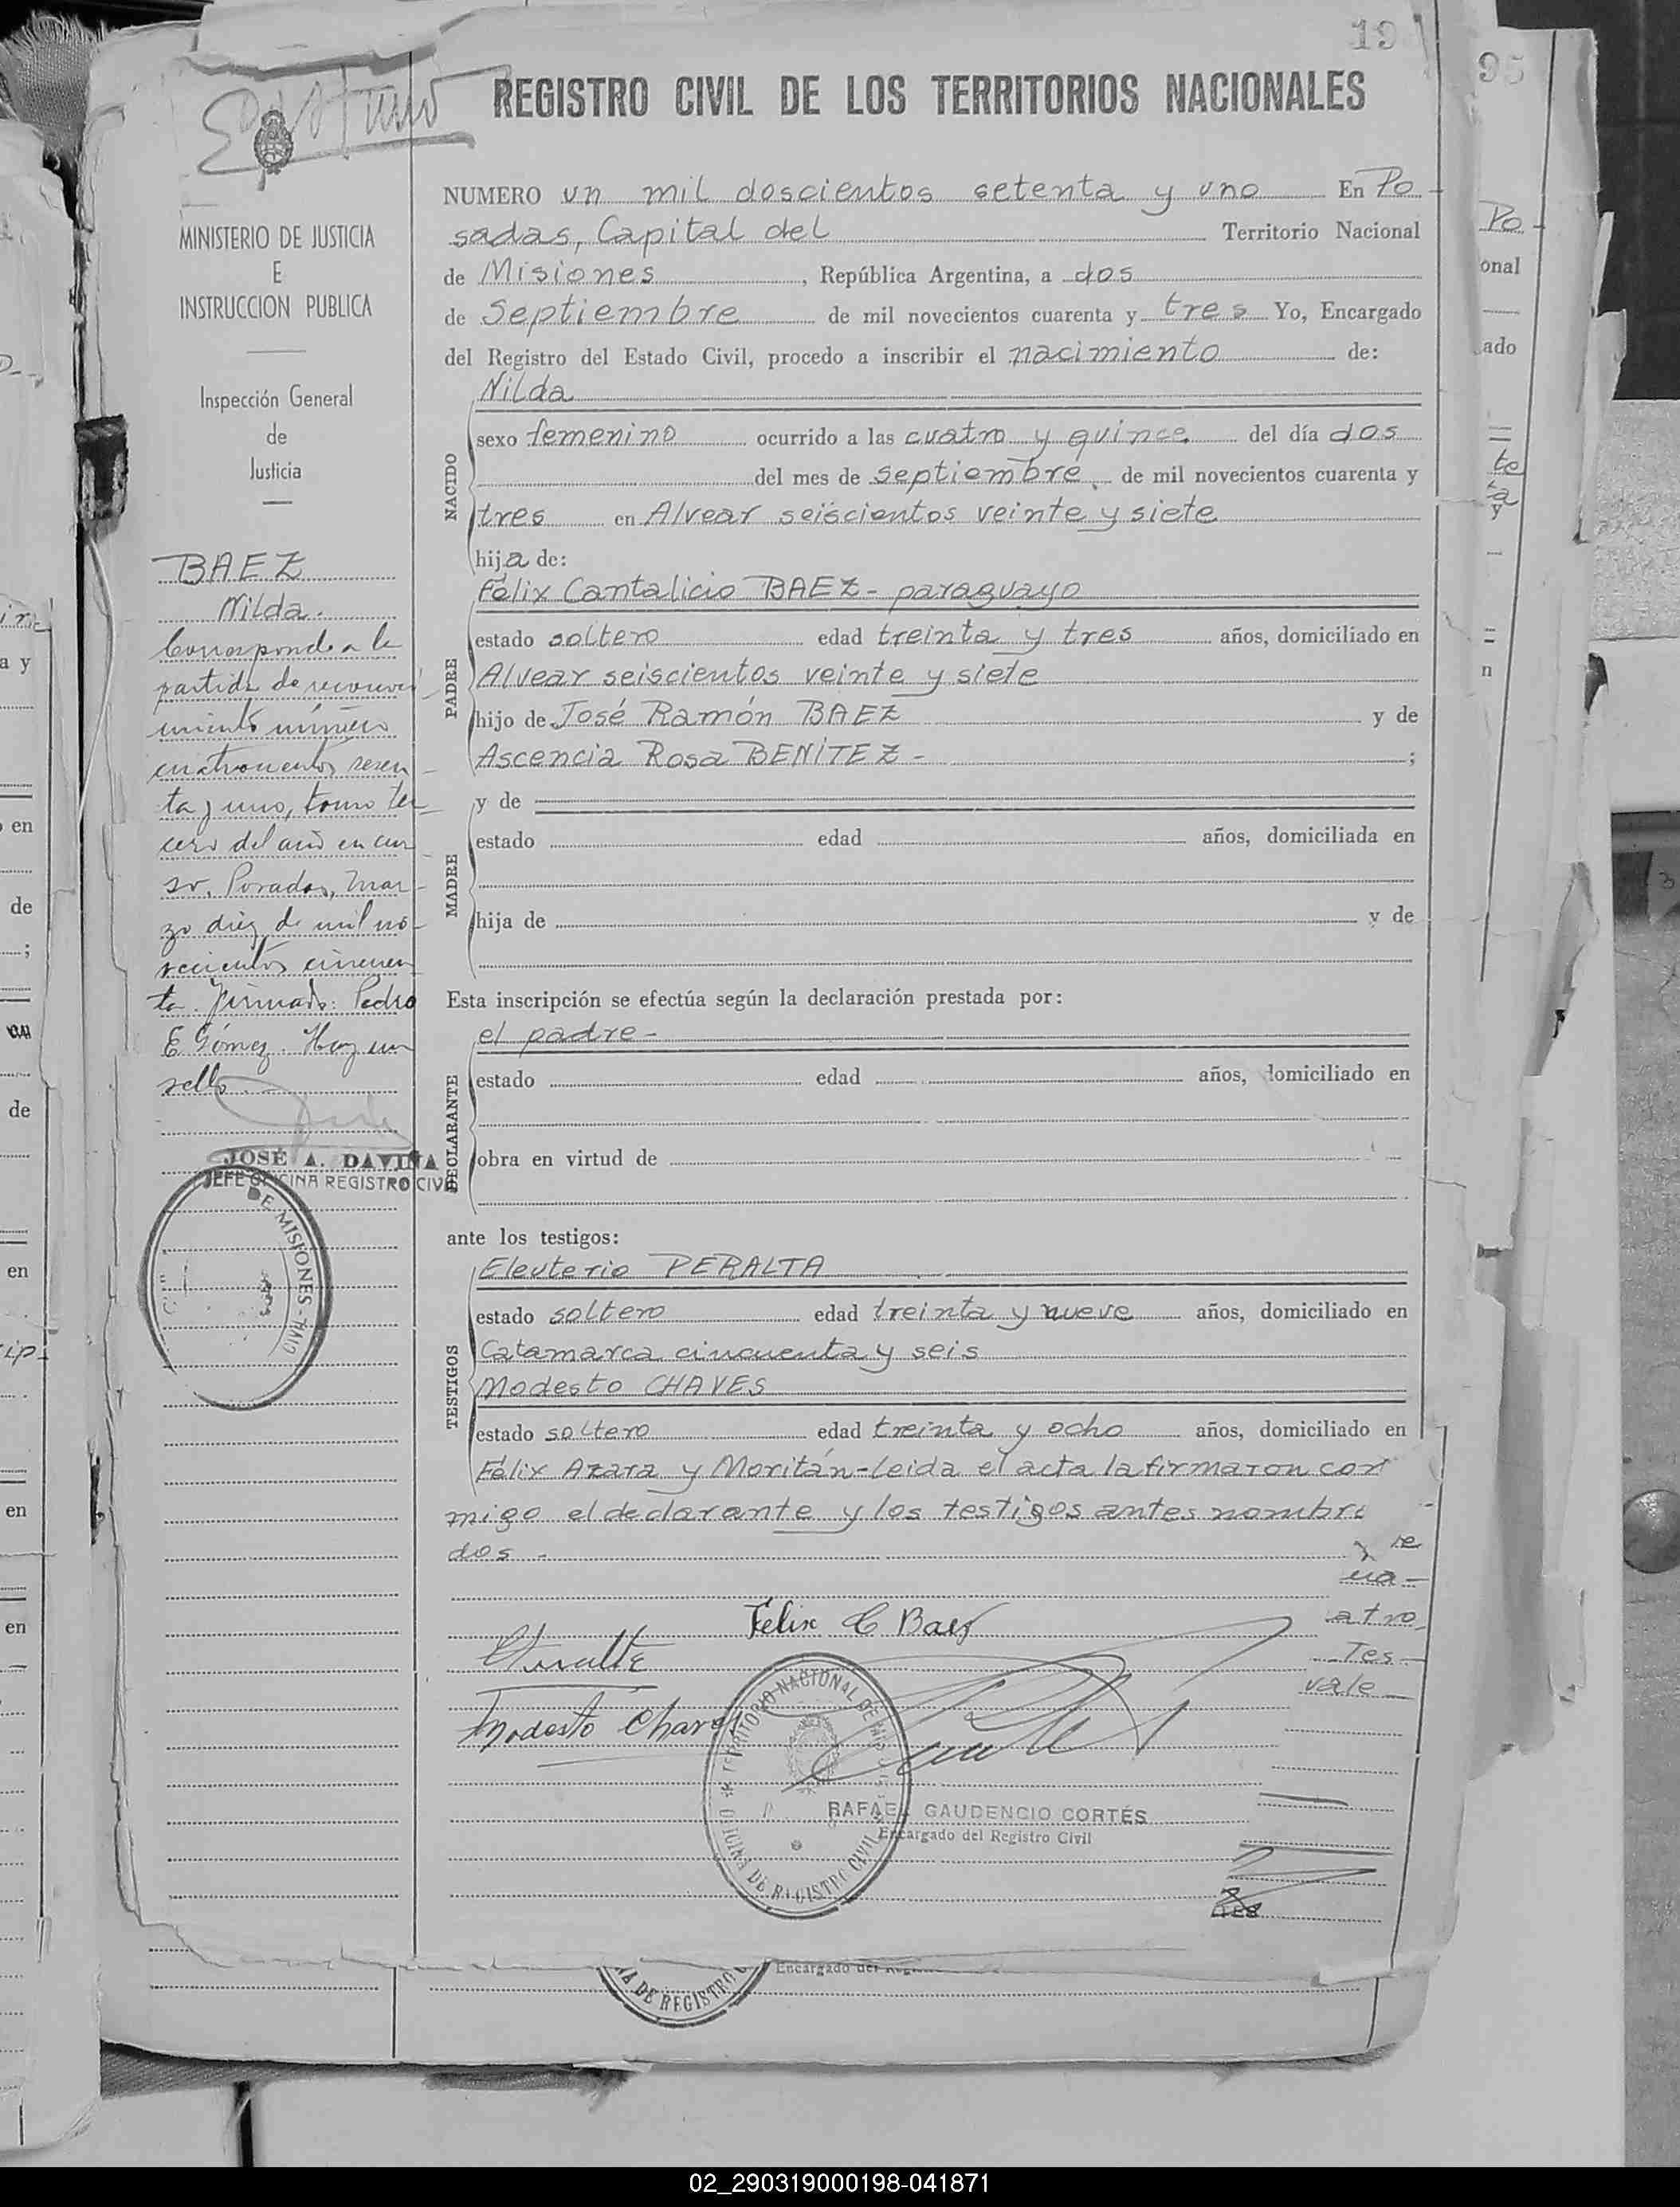 19
95
REGISTRO CIVIL DE LOS TERRITORIOS NACIONALES
MINISTERIO DE JUSTICIA
E
INSTRUCCION PUBLICA
Inspección General
de
Justicia
BAEZ
Nilda.
Corresponde a la
partida de reconoci
miento número
cuatrocientos sesen
ta y uno, tomo ter
cero del año en cur
so. Posadas, Mar-
zo diez de mil no-
vecientos cincuen
ta. Firmado: Pedro
E Gómez. Hay un
sello
JOSÉ A. DAVIÑA
JEFE OFICINA REGISTRO CIVIL
DE MISIONES
NUMERO un mil doscientos setenta y uno En Po
sadas, Capital del Territorio Nacional
de Misiones, República Argentina, a dos
de Septiembre de mil novecientos cuarenta y tres Yo, Encargado
del Registro del Estado Civil, procedo a inscribir el nacimiento de:
NACIDO
Nilda
sexo femenino ocurrido a las cuatro y quince del día dos
del mes de septiembre de mil novecientos cuarenta y
tres en Alvear seiscientos veinte y siete
hija de:
PADRE
Félix Cantalicio BAEZ - paraguayo
estado soltero edad treinta y tres años, domiciliado en
Alvear seiscientos veinte y siete
hijo de José Ramón BAEZ y de
Ascencia Rosa BENITEZ - ;
MADRE
y de
estado edad años, domiciliada en
hija de y de
Esta inscripción se efectúa según la declaración prestada por:
DECLARANTE
el padre -
estado edad años, domiciliado en
obra en virtud de
ante los testigos:
TESTIGOS
Eleuterio PERALTA
estado soltero edad treinta y nueve años, domiciliado en
Catamarca cincuenta y seis
Modesto CHAVES
estado soltero edad treinta y ocho años, domiciliado en
Félix Azara y Moritán - leida el acta la firmaron con
migo el declarante y los testigos antes nombra
dos -
Felix C Baez
Modesto Chaves
TERRITORIO NACIONAL DE MISIONES
OFICINA DE REGISTRO CIVIL
RAFAEL GAUDENCIO CORTÉS
Encargado del Registro Civil
vale
DE REGISTRO
Encargado del
02_290319000198-041871